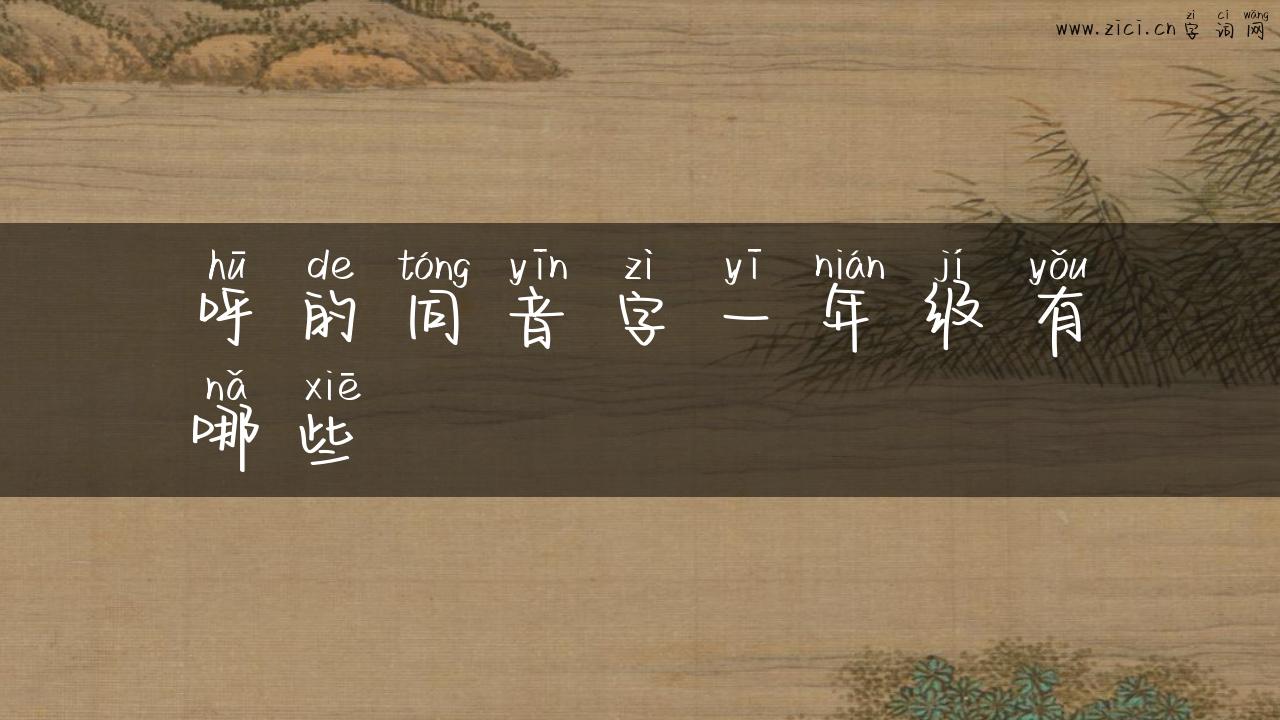 zì cí wǎng
www.zici.cn 字词网
hū de tóng yīn zì yī nián jí yǒu
呼的同音字一年级有
nǎ xiē
哪些